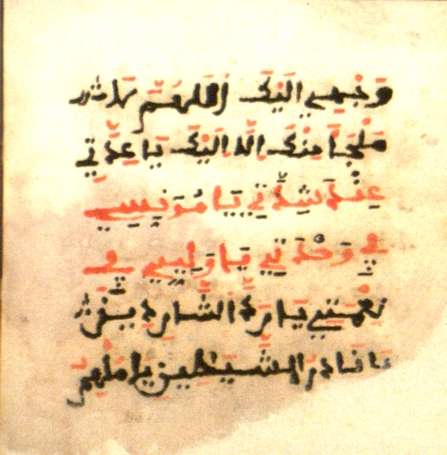 وَجْهِي اِلَيْكَ اَللهُمَّ
مَلْجَأ مِنْكَ اِلَّا اِلَيْكَ يَا عِدَّتِي
عِنْدَ شِدَّتِي يَا مُونِسِي
فِي وَحْدَتِي يَا وَلِيِّي فِي
نِعْمَتِي يَا رَادَّ الشَّارِدِينَ
يا الشَّيَطِينِ يا مُلْهِمَ